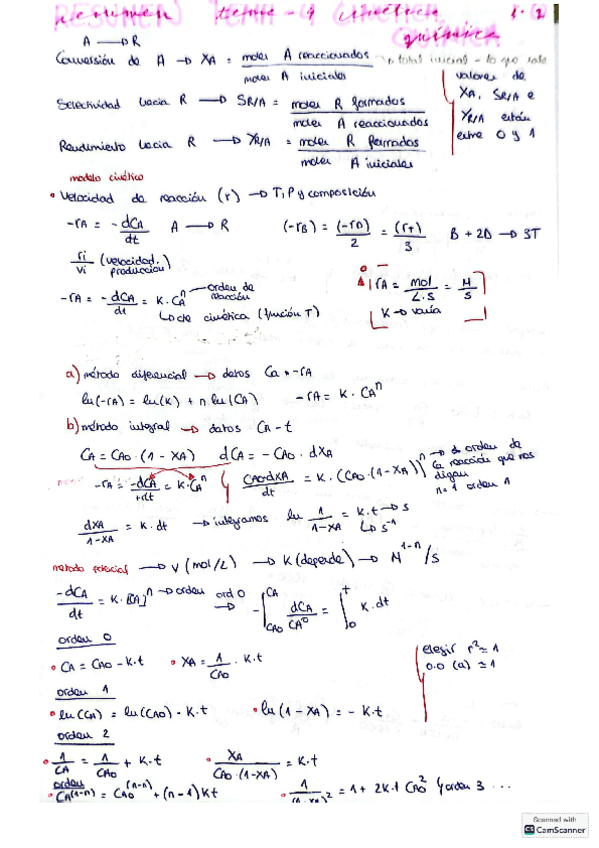 RESUMEN TEMA-4 CINÉTICA 1.2
QUÍMICA
A → R
Conversión de A → XA = moles A reaccionados / moles A iniciales
n total inicial - lo que sale
Selectividad hacia R → SR/A = moles R formados / moles A reaccionados
Rendimiento hacia R → YR/A = moles R formados / moles A iniciales
valores de
XA, SR/A e
YR/A están
entre 0 y 1
modelo cinético
• Velocidad de reacción (r) → T, P y composición
-rA = -dCA/dt A → R (-rB) = (-rD)/2 = (rT)/3 B + 2D → 3T
ri/vi (velocidad producción)
-rA = -dCA/dt = K·CA^n → orden de reacción
↳ cte cinética (función T)
rA = mol/L·s = M/s
K → varía
a) método diferencial → datos CA · -rA
ln(-rA) = ln(K) + n ln(CA) -rA = K·CA^n
b) método integral → datos CA - t
CA = CAO·(1 - XA) dCA = -CAO·dXA
-rA = -dCA/dt = K·CA^n
CAO·dXA/dt = K·(CAO·(1-XA))^n → orden de
la reacción que nos
digan
n=1 orden 1
dXA/1-XA = K·dt → integramos ln 1/1-XA = K·t → s
↳ s^-1
→ V (mol/L) → K (depende) → M^1-n/s
-dCA/dt = K·[CA]^n → orden ord 0 → -∫CAO^CA dCA/CA^0 = ∫0^t K·dt
orden 0
• CA = CAO - K·t • XA = 1/CAO · K·t
elegir r² ≃ 1
o.o (a) ≃ 1
orden 1
• ln(CA) = ln(CAO) - K·t • ln(1 - XA) = -K·t
orden 2
• 1/CA = 1/CAO + K·t • XA/CAO·(1-XA) = K·t
orden
• CA^(1-n) = CAO^(1-n) + (n-1)Kt • 1/(1-XA)² = 1 + 2K·t CAO² orden 3 ...
Scanned with
CS CamScanner